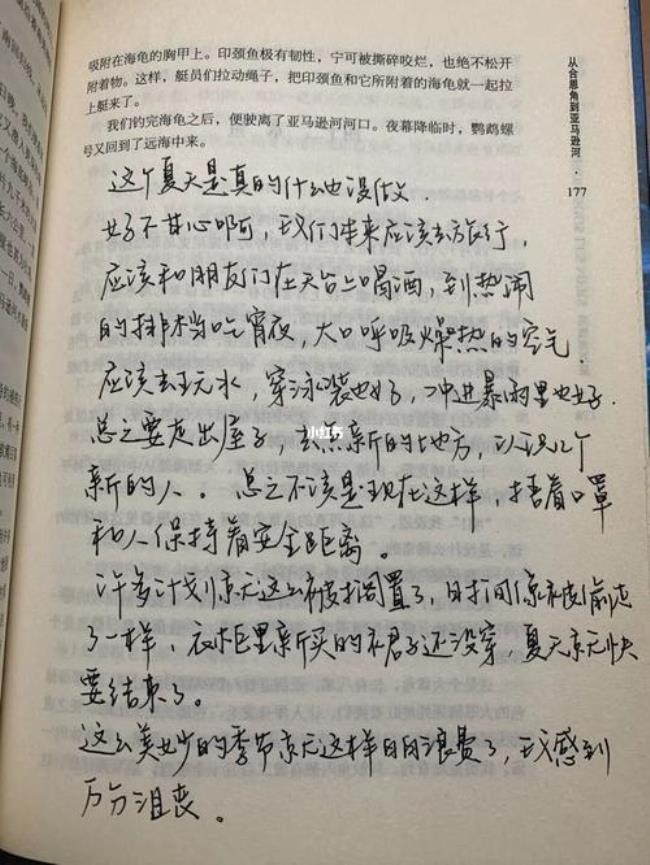 吸附在海龟的胸甲上。印颈鱼极有韧性，宁可被撕碎咬烂，也绝不松开
附着物。这样，艇员们拉动绳子，把印颈鱼和它所附着的海龟就一起拉
上艇来了。
我们钓完海龟之后，便驶离了亚马逊河河口。夜幕降临时，鹦鹉螺
号又回到了远海中来。
从合恩角到亚马逊河·
177
这个夏天是真的什么也没做。
好不甘心啊，我们本来应该去旅行，
应该和朋友们在天台上喝酒，到热闹
的排档吃宵夜，大口呼吸燥热的空气。
应该去玩水，穿泳装也好，冲进暴雨里也好。
总之要走出屋子，去点新的地方，认识几个
新的人。总之不该是现在这样，捂着口罩
和人保持着安全距离。
许多计划就这么被搁置了，时间像被偷走
了一样，衣柜里新买的裙子还没穿，夏天就快
要结束了。
这么美妙的季节就这样白白浪费了，我感到
万分沮丧。
小红书